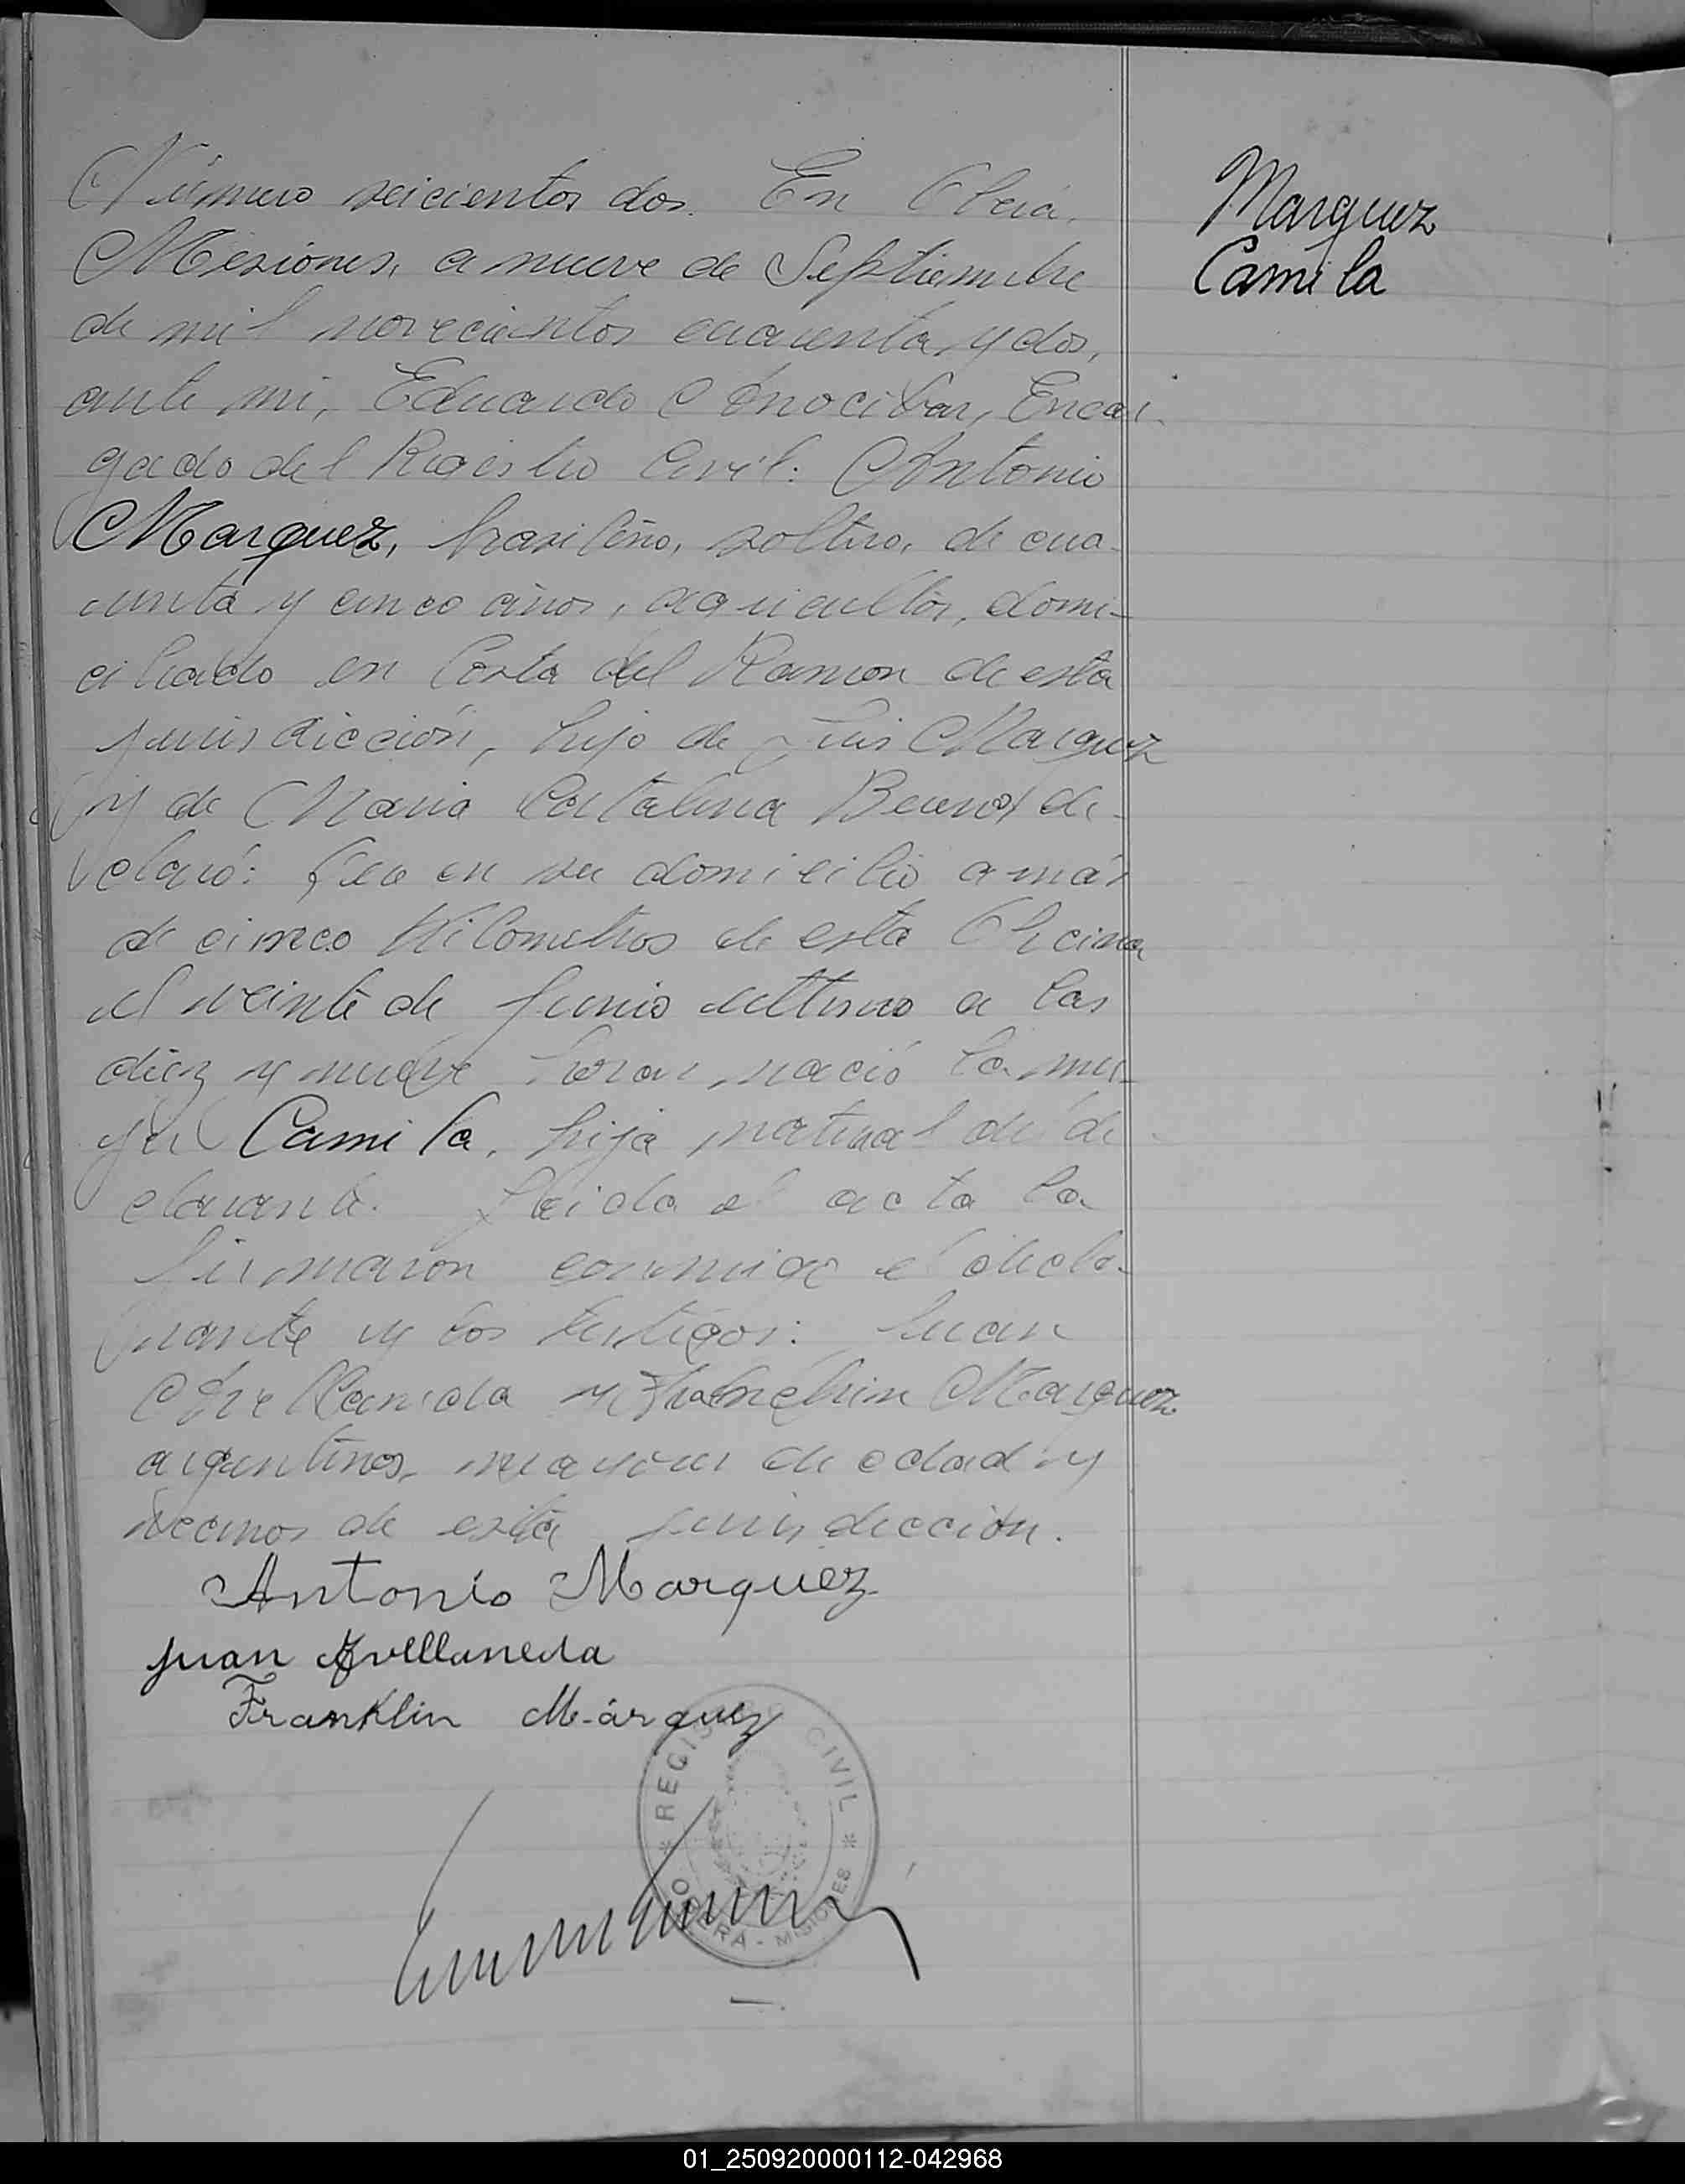 Número seicientos dos. En Oberá,
Misiones, a nueve de Septiembre
de mil novecientos cuarenta y dos,
ante mi, Eduardo Encar-
gado del Registro Civil: Antonio
Marquez, brasileño, soltero, de cua-
renta y cinco años, agricultor, domi-
ciliado en Costa del Ramon de esta
jurisdicción, hijo de Luis Marquez
y de Maria Catalina de-
claró: Que en su domicilio a más
de cinco Kilometros de esta Oficina
el veinte de Junio ultimo a las
diez y nueve horas nació la mu-
jer Camila, hija natural del de-
clarante. Leida el acta la
firmaron conmigo el decla-
rante y los testigos: Juan
Avellaneda y Franchin Marquez
argentinos, mayores de edad y
vecinos de esta jurisdicción.
Antonio Marquez
Juan Avellaneda
Franklin Márquez
REGISTRO CIVIL
OBERA - MISIONES
Marquez
Camila
01_250920000112-042968